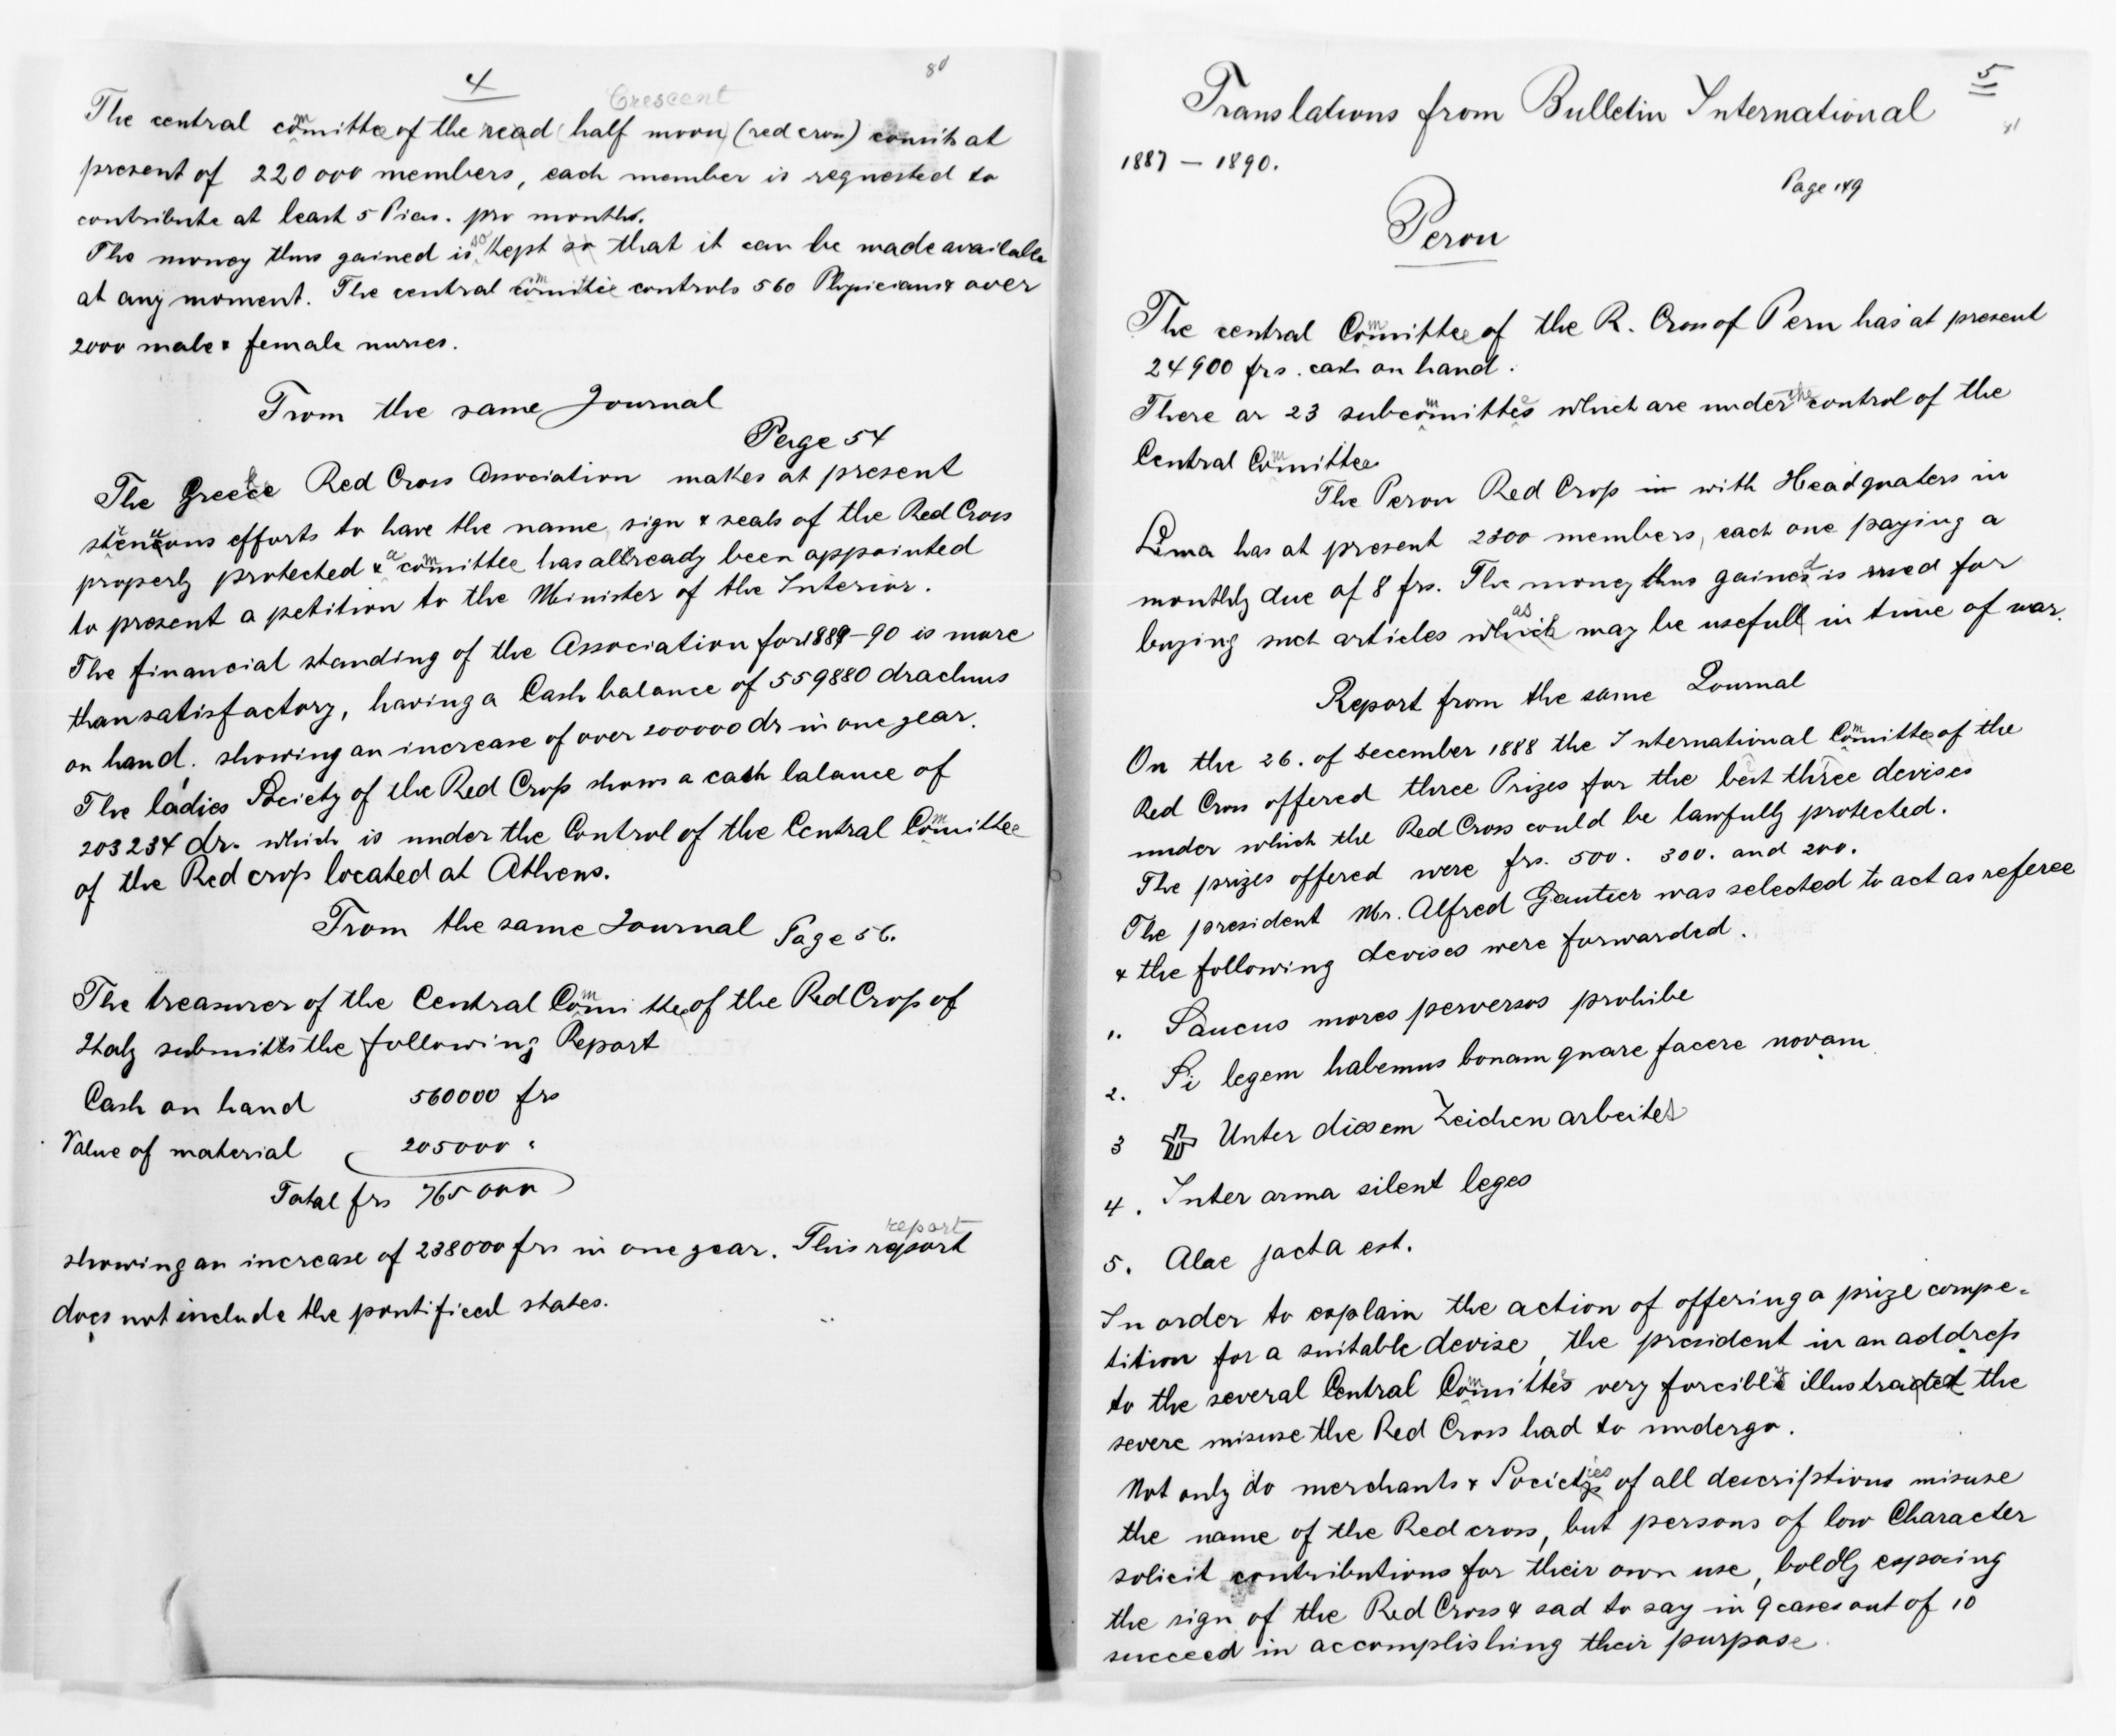 4
80
Crescent
The central committee of the read (half moon) (red cross) consits at
present of 220 000 members, each member is requested to
contribute at least 5 Pias. pro months.
The money thus gained is so kept so that it can be made available
at any moment. The central committee controls 560 Physicians & over
2000 male & female nurses.
From the same Journal
Page 54
The Greece Red Cross Association makes at present
strenuous efforts to have the name, sign & seals of the Red Cross
properly protected & a committee has allready been appointed
to present a petition to the Minister of the Interior.
The financial standing of the Association for 1889-90 is more
than satisfactory, having a Cash balance of 559880 drachms
on hand. showing an increase of over 200000 dr in one year.
The ladies Society of the Red Cross shows a cash balance of
203234 dr. which is under the Control of the Central Committee
of the Red cross located at Athens.
From the same Journal Page 56.
The treasurer of the Central Committee of the Red Cross of
Italy submitts the following Report
Cash on hand 560000 frs
Value of material 205000 "
Total frs 765000
report
showing an increase of 238000 frs in one year. This report
does not include the pontificial states.
5
Translations from Bulletin International
81
1887 — 1890.
Page 149
Perou
The central Committee of the R. Cross of Peru has at present
24900 frs. cash on hand.
There ar 23 subcommittees which are under the control of the
Central Committee
The Perou Red Cross in with Headquaters in
Lima has at present 2300 members, each one paying a
monthly due of 8 frs. The money thus gained is used for
buying such articles which as may be usefull in time of war.
Report from the same Journal
On the 26. of December 1888 the International Committee of the
Red Cross offered three Prizes for the best three devises
under which the Red Cross could be lawfully protected.
The prizes offered were frs. 500. 300. and 200.
The president Mr. Alfred Gautier was selected to act as referee
& the following devises were forwarded.
1. Saucus mores perversos prohibe
2. Si legem habemus bonam quare facere novam
3 Unter diesem Zeichen arbeitet
4. Inter arma silent leges
5. Alae jacta est.
In order to explain the action of offering a prize compe-
tition for a suitable devise, the president in an address
to the several Central Committes very forcibly illustracted the
severe misuse the Red Cross had to undergo.
Not only do merchants & Societies of all descriptions misuse
the name of the Red cross, but persons of low Character
solicit contributions for their own use, boldly exposing
the sign of the Red Cross & sad to say in 9 cases out of 10
succeed in accomplishing their purpose